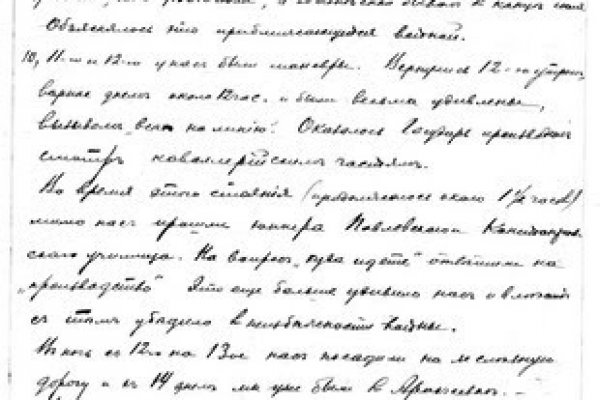 Объяснялось это приближающейся войной.
10, 11-го и 12-го у нас были маневры. Вернулись 12-го утром,
вернее днем около 12 час. и были весьма удивлены,
вызовом „всех на линию“. Оказалось Государь производит
смотр кавалерийским частям.
Во время этого стояния (продолжалось около 1½ часов)
мимо нас прошли юнкера Павловского
училища. На вопрос „куда идете“ отвечали на
„производство“ Это еще больше удивило нас и
с тем убедило в неизбежности войны.
В ночь с 12го на 13ое нас посадили на железную
дорогу и с 14 днем мы уже были в